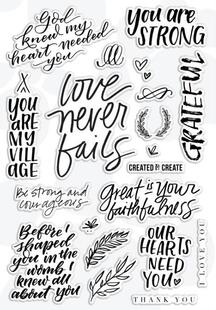 God
knew my
heart needed
you
you are
STRONG
GRATEFUL
love
never
fails
you
are
my
vill
age
CREATED to CREATE
Be strong and
courageous
great is your
faithfulness
Before I
shaped
you in the
womb I
knew all
about you
OUR
HEARTS
NEED
YOU
I LOVE YOU
THANK YOU